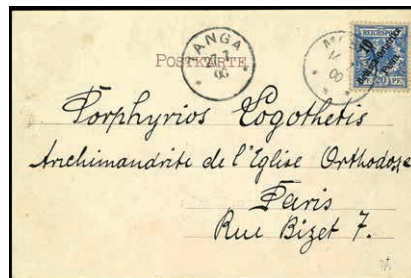 POSTKARTE
TANGA
00
REICHSPOST
20 PF 20 PF
Porphyrios Logothetis
Archimandrite de l'Eglise Orthodoxe
Paris
Rue Bizet 7.